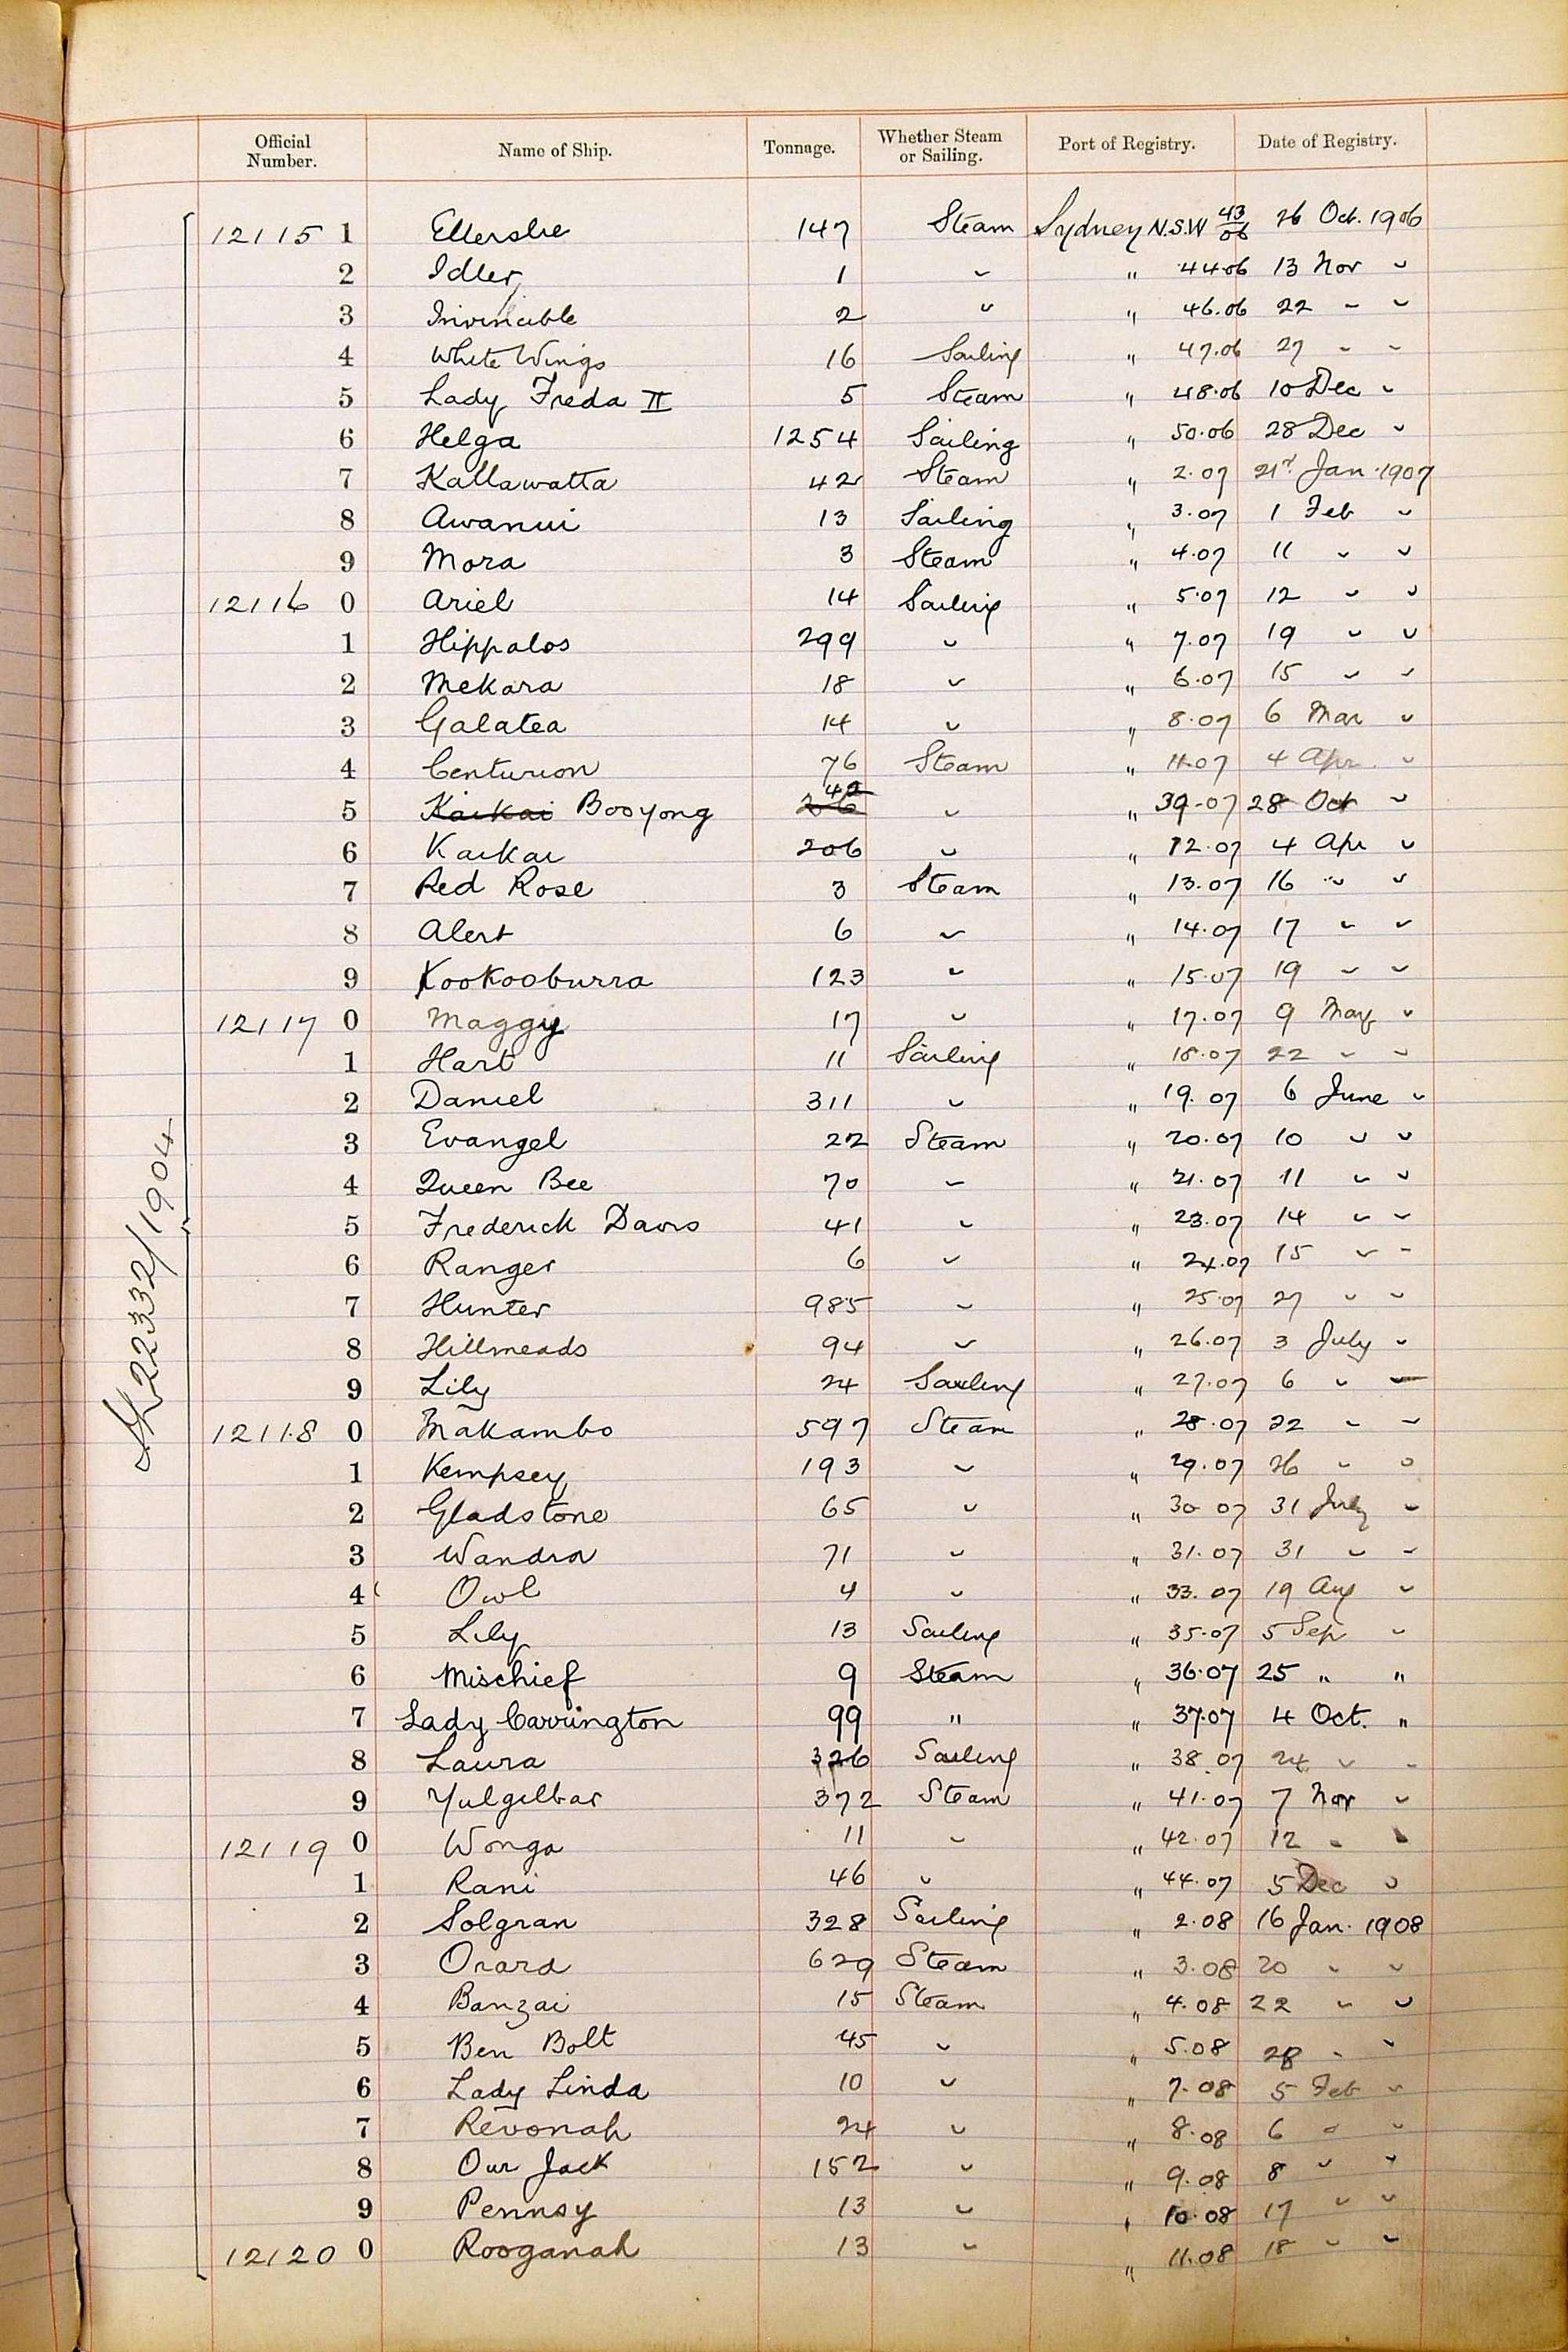 Official Number. Name of Ship. Tonnage. Whether Steam or Sailing. Port of Registry. Date of Registry.
12115 1 Ellerslie 147 Steam Sydney N.S.W 43/06 26 Oct. 1906
2 Idler 1 " " 44.06 13 Nov "
3 Invincible 2 " " 46.06 22 " "
4 White Wings 16 Sailing " 47.06 27 " "
5 Lady Freda II 5 Steam " 48.06 10 Dec "
6 Helga 1254 Sailing " 50.06 28 Dec "
7 Kallawatta 42 Steam " 2.07 21st Jan. 1907
8 Awanui 13 Sailing " 3.07 1 Feb "
9 Mora 3 Steam " 4.07 11 " "
12116 0 Ariel 14 Sailing " 5.07 12 " "
1 Hippalos 299 " " 7.07 19 " "
2 Mekara 18 " " 6.07 15 " "
3 Galatea 14 " " 8.07 6 Mar "
4 Centurion 76 Steam " 11.07 4 Apr. "
5 Kaikai Booyong 206 42 " " 39-07 28 Oct "
6 Kaikai 206 " " 12.07 4 Apr "
7 Red Rose 3 Steam " 13.07 16 " "
8 Alert 6 " " 14.07 17 " "
9 Kookooburra 123 " " 15.07 19 " "
12117 0 Maggy 17 " " 17.07 9 May "
1 Hart 11 Sailing " 18.07 22 " "
2 Daniel 311 " " 19.07 6 June "
3 Evangel 22 Steam " 20.07 10 " "
4 Queen Bee 70 " " 21.07 11 " "
5 Frederick Davis 41 " " 23.07 14 " "
6 Ranger 6 " " 24.07 15 " "
7 Hunter 985 " " 25.07 27 " "
8 Hillmeads 94 " " 26.07 3 July "
9 Lily 24 Sailing " 27.07 6 " "
12118 0 Makambo 597 Steam " 28.07 22 " "
1 Kempsey 193 " " 29.07 26 " "
2 Gladstone 65 " " 30 07 31 July "
3 Wandra 71 " " 31.07 31 " "
4 Owl 4 " " 33.07 19 Aug "
5 Lily 13 Sailing " 35.07 5 Sep "
6 Mischief 9 Steam " 36.07 25 " "
7 Lady Carrington 99 " " 37.07 4 Oct. "
8 Laura 326 Sailing " 38.07 24 " "
9 Yulgilbar 372 Steam " 41.07 7 Nov "
12119 0 Wonga 11 " " 42.07 12 " "
1 Rani 46 " " 44.07 5 Dec "
2 Solgran 328 Sailing " 2.08 16 Jan. 1908
3 Orara 629 Steam " 3.08 20 " "
4 Banzai 15 Steam " 4.08 22 " "
5 Ben Bolt 45 " " 5.08 28 " "
6 Lady Linda 10 " " 7.08 5 Feb "
7 Revonah 24 " " 8.08 6 " "
8 Our Jack 152 " " 9.08 8 " "
9 Pennsy 13 " " 10.08 17 " "
12120 0 Rooganah 13 " " 11.08 18 " "
22332/1904